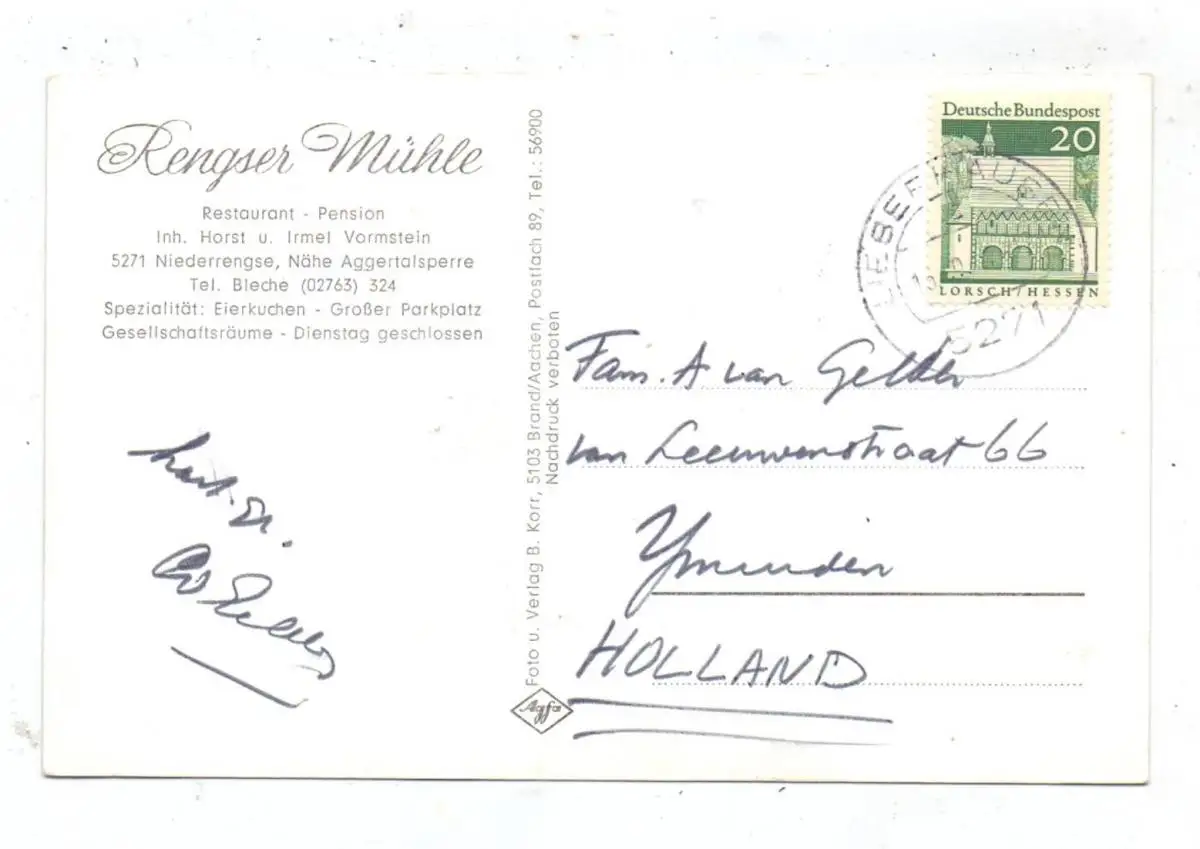 Rengser Mühle
Restaurant - Pension
Inh. Horst u. Irmel Vormstein
5271 Niederrengse, Nähe Aggertalsperre
Tel. Bleche (02763) 324
Spezialität: Eierkuchen - Großer Parkplatz
Gesellschaftsräume - Dienstag geschlossen
Foto u. Verlag B. Korr, 5103 Brand/Aachen, Postfach 89, Tel.: 56900
Nachdruck verboten
Agfa
Deutsche Bundespost
20
LORSCH/HESSEN
5271
Fam. A van Gelder
van Leeuwenstraat 66
Ymuiden
HOLLAND